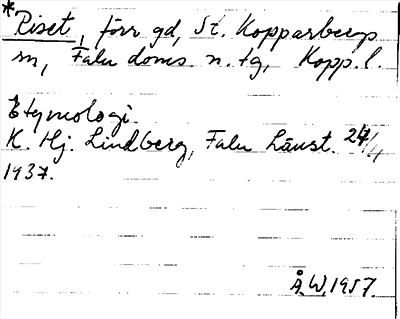 *Riset, förr gd, St. Kopparbergs
sn, Falu doms. n. tg, Kopp. l.
Etymologi.
K. Hj. Lindberg, Falu Länst. 24/11
1937.
Å.W. 1957.